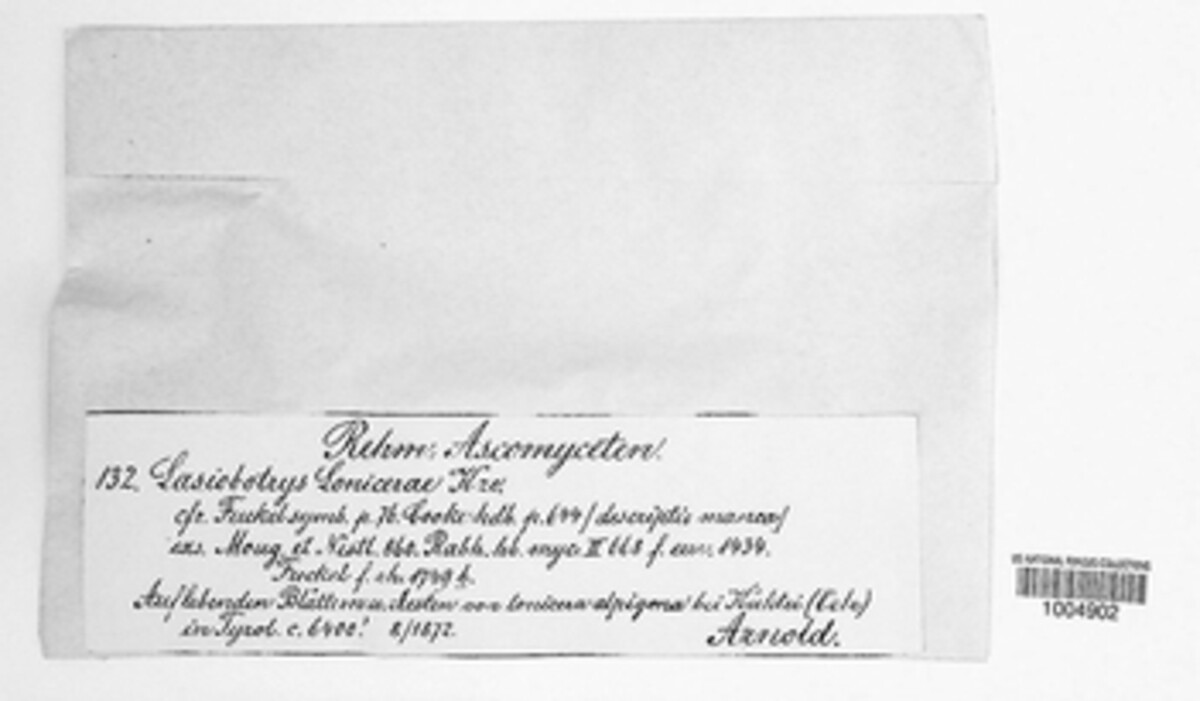 Rehm: Ascomyceten.
132. Lasiobotrys Lonicerae Kze.
cfr. Fuckel symb. p. 76. Cooke hdb. p. 644 / descriptio manca /
exs. Moug. et Nestl. 660. Rabh. hb. myc. II 668 f. eur. 1434.
Fuckel f. rh. 1749 b.
Auf lebenden Blättern u. Aesten von Lonicera alpigena bei
in Tyrol. c. 6400! 8/1872.
Arnold.
US NATIONAL FUNGUS COLLECTIONS
1004902